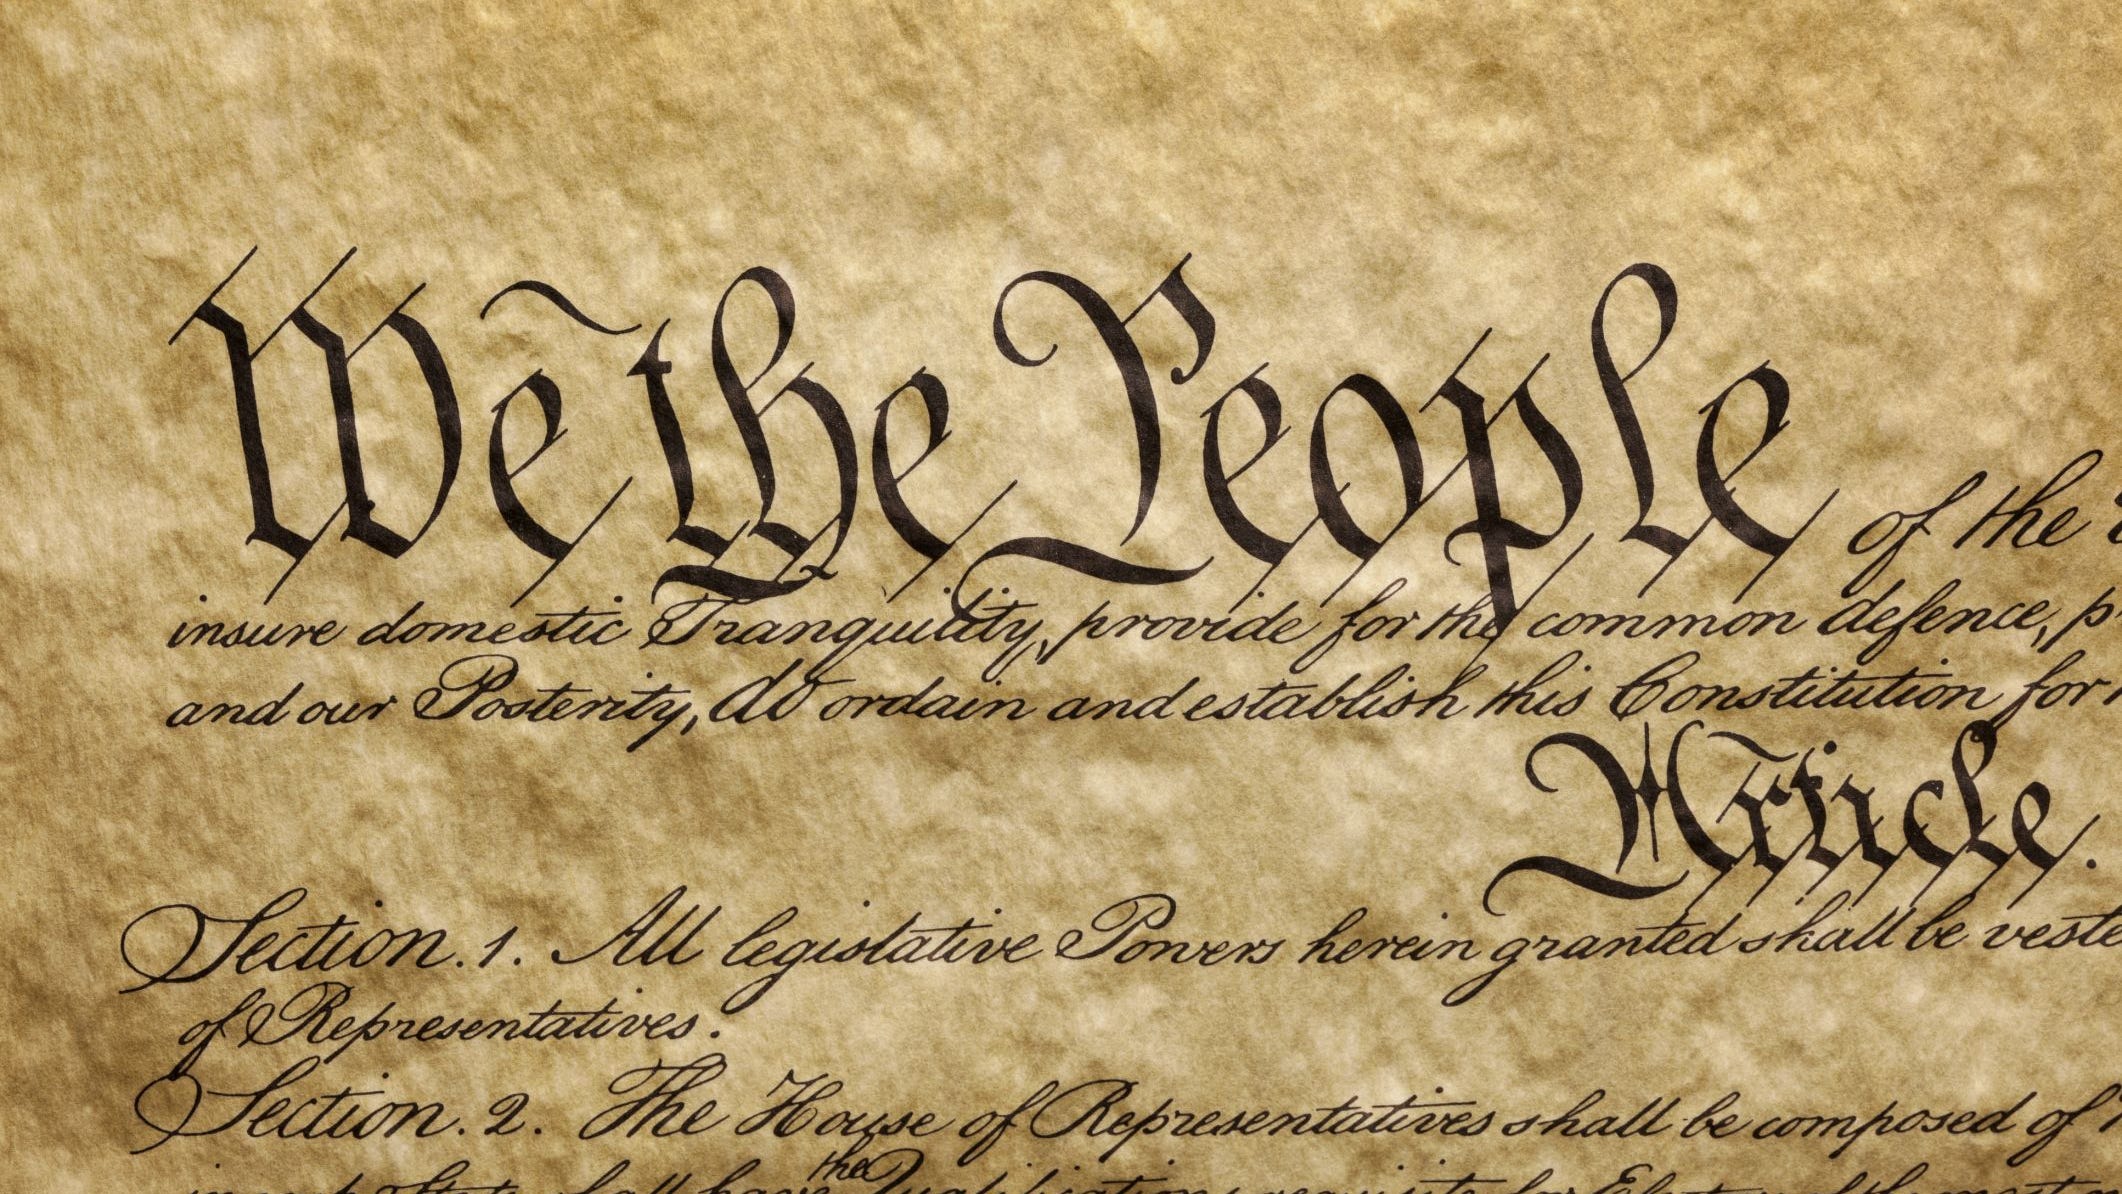 We the People of the
insure domestic Tranquility, provide for the common defence,
and our Posterity, do ordain and establish this Constitution for
Article.
Section. 1. All legislative Powers herein granted shall be
of Representatives.
Section. 2. The House of Representatives shall be composed of
the